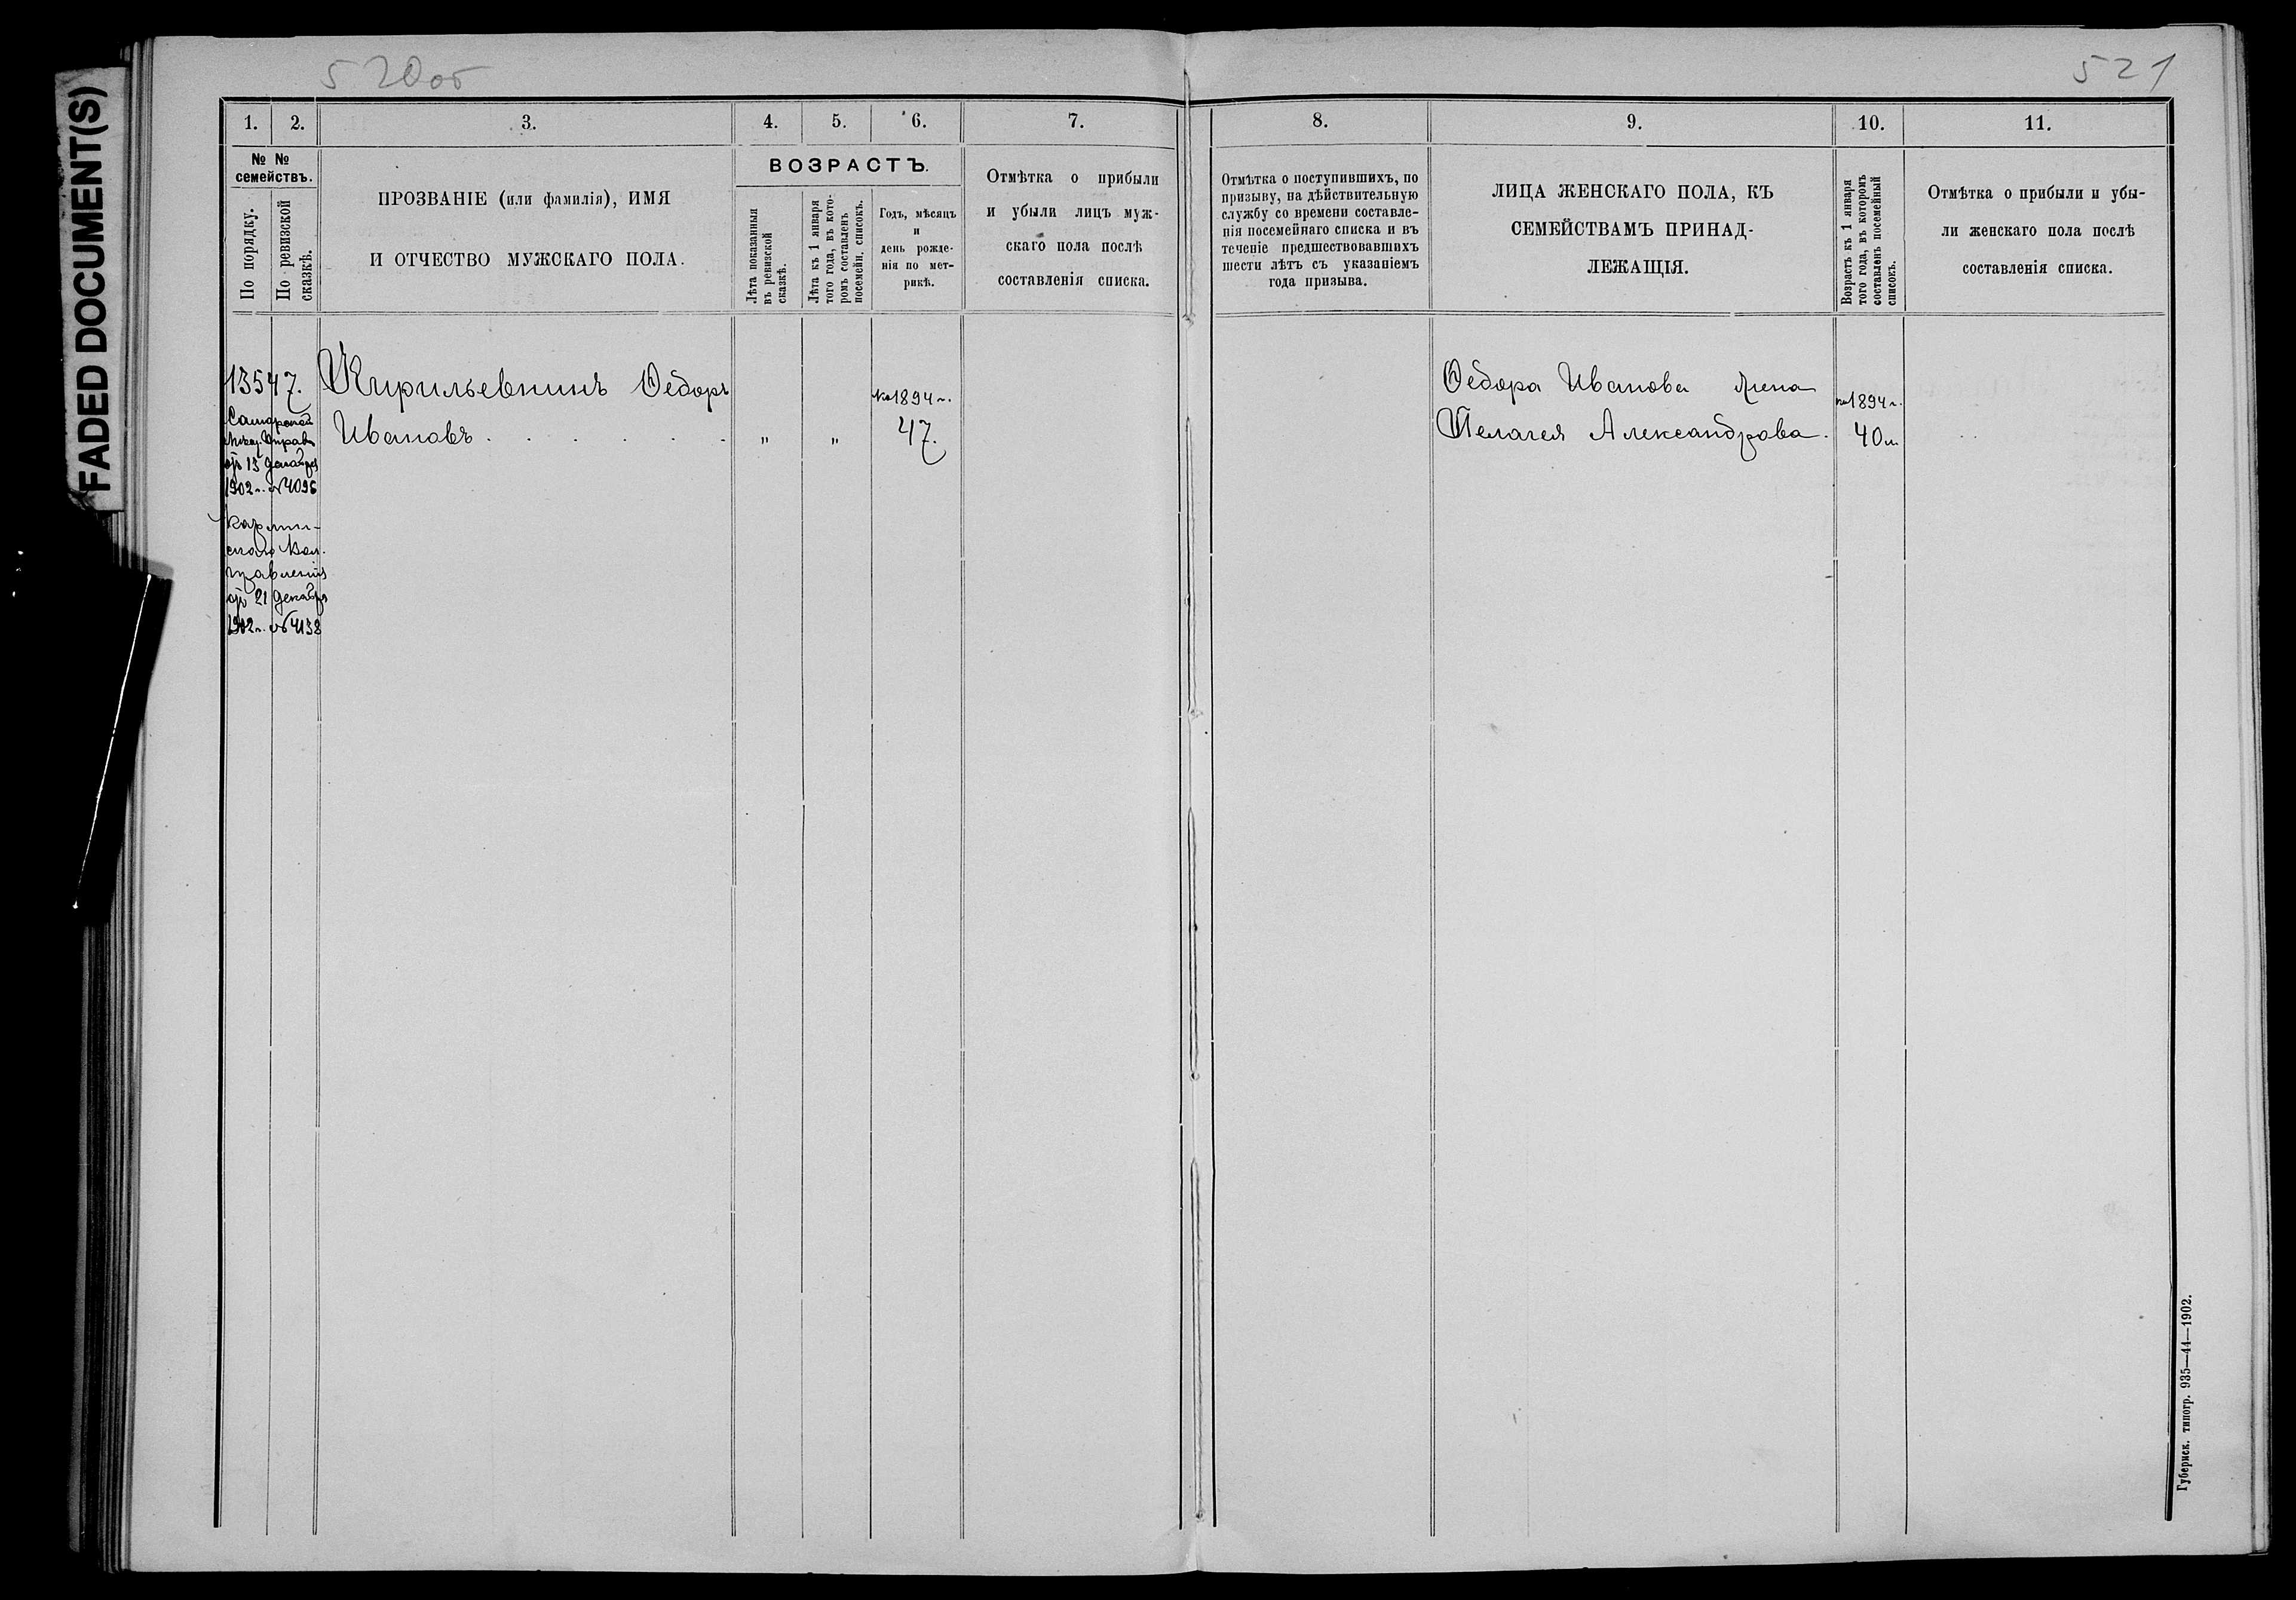 FADED DOCUMENT(S)
520об
521
1. 2. 3. 4. 5. 6. 7.
8. 9. 10. 11.
№ №
семействъ.
По порядку.
По ревизской
сказкѣ.
ПРОЗВАНІЕ (или фамилія), ИМЯ
И ОТЧЕСТВО МУЖСКАГО ПОЛА.
ВОЗРАСТЪ.
Лѣта показанныя
въ ревизской
сказкѣ.
Лѣта къ 1 января
того года, въ кото-
ромъ составленъ
посемейн. списокъ.
Годъ, мѣсяцъ
и
день рожде-
нія по мет-
рикѣ.
Отмѣтка о прибыли
и убыли лицъ муж-
скаго пола послѣ
составленія списка.
Отмѣтка о поступившихъ, по
призыву, на дѣйствительную
службу со времени составле-
нія посемейнаго списка и въ
теченіе предшествовавшихъ
шести лѣтъ съ указаніемъ
года призыва.
ЛИЦА ЖЕНСКАГО ПОЛА, КЪ
СЕМЕЙСТВАМЪ ПРИНАД-
ЛЕЖАЩІЯ.
Возрастъ къ 1 января
того года, въ которомъ
составленъ посемейный
списокъ.
Отмѣтка о прибыли и убы-
ли женскаго пола послѣ
составленія списка.
13547.
Управ
от 13 декабря
1902 г. №4096
Вол.
правленія
от 21 декабря
1902 г. №4138
Кирильевнинъ Ѳедоръ
Ивановъ . . . . . . „ „
на 1894 г.
47.
Ѳедора Иванова жена
Пелагея Александрова.
на 1894 г.
40 л.
Губернск. типогр. 935—44—1902.